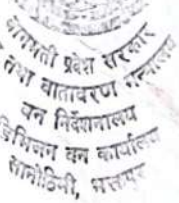 बागमती प्रदेश सरकार
तथा वातावरण मन्त्रालय
वन निर्देशनालय
डिभिजन वन कार्यालय
सानोठिमी, भक्तपुर